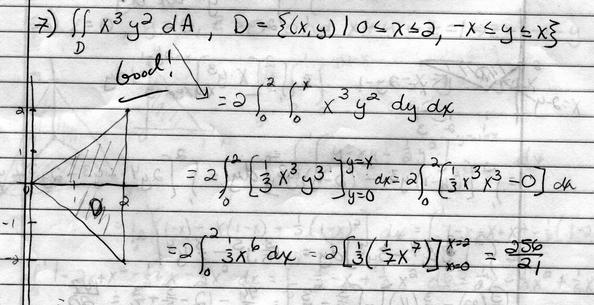 7) ∬_D x³y² dA, D = {(x,y) | 0 ≤ x ≤ 2, -x ≤ y ≤ x}
Good!
= 2 ∫₀² ∫₀ˣ x³y² dy dx
= 2 ∫₀² [⅓ x³y³]_{y=0}^{y=x} dx = 2 ∫₀² [⅓ x³x³ - 0] dx
= 2 ∫₀² ⅓x⁶ dx = 2 [⅓(1/7 x⁷)]_{x=0}^{x=2} = 256/21
2
1
0
D
2
-1
-2